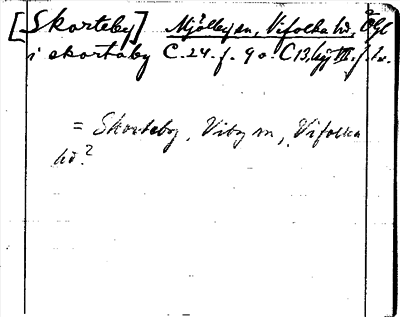 [Skorteby] Mjölby sn, Vifolka hd, Ögl
i skortaby C. 24. f. 90. C13, hg III. f. 1v.
= Skorteby, Viby sn, Vifolka
hd?